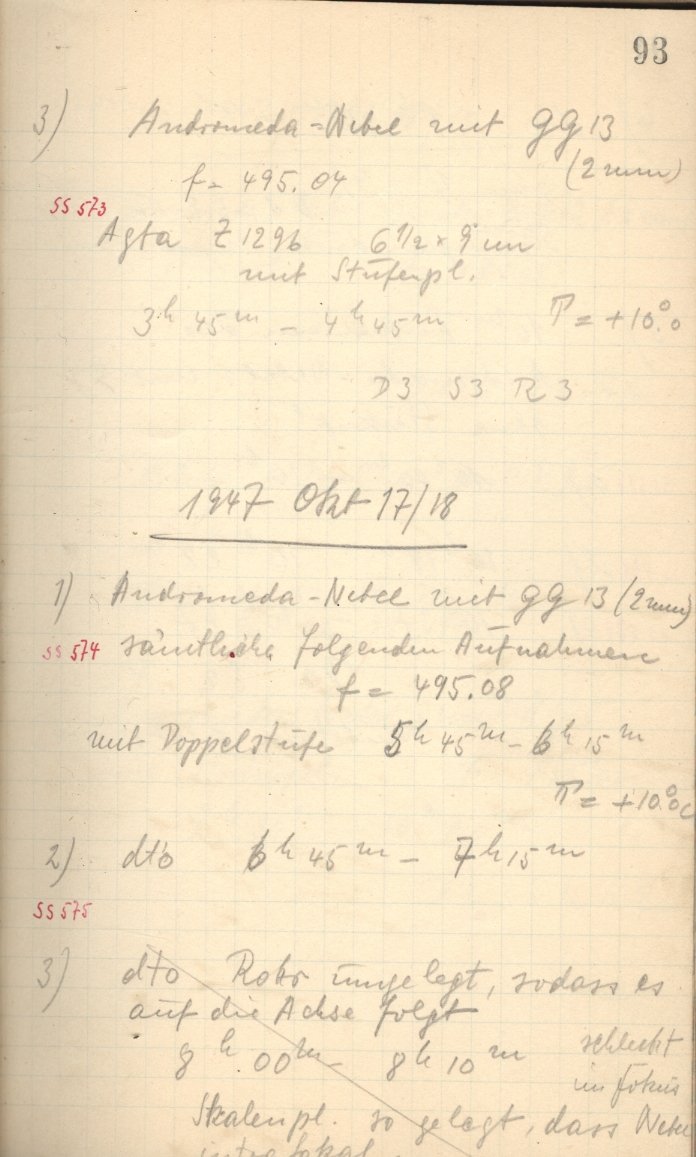 93
3) Andromeda-Nebel mit GG 13
(2 mm)
f = 495.04
SS 573
Agfa Z 1296 6 1/2 x 9 cm
mit Stufenpl.
3h 45m - 4h 45m T = +10.°0
D3 S3 R3
1947 Okt 17/18
1) Andromeda-Nebel mit GG 13 (2mm)
SS 574 sämtliche folgenden Aufnahmen
f = 495.08
mit Doppelstufe 5h 45m - 6h 15m
T = +10.°0C
2) dto 6h 45m - 7h 15m
SS 575
3) dto Rohr umgelegt, sodass es
auf die Achse folgt
8h 00m - 8h 10m schlecht
im Fokus
Skalenpl. so gelegt, dass Nebel
intrafokal